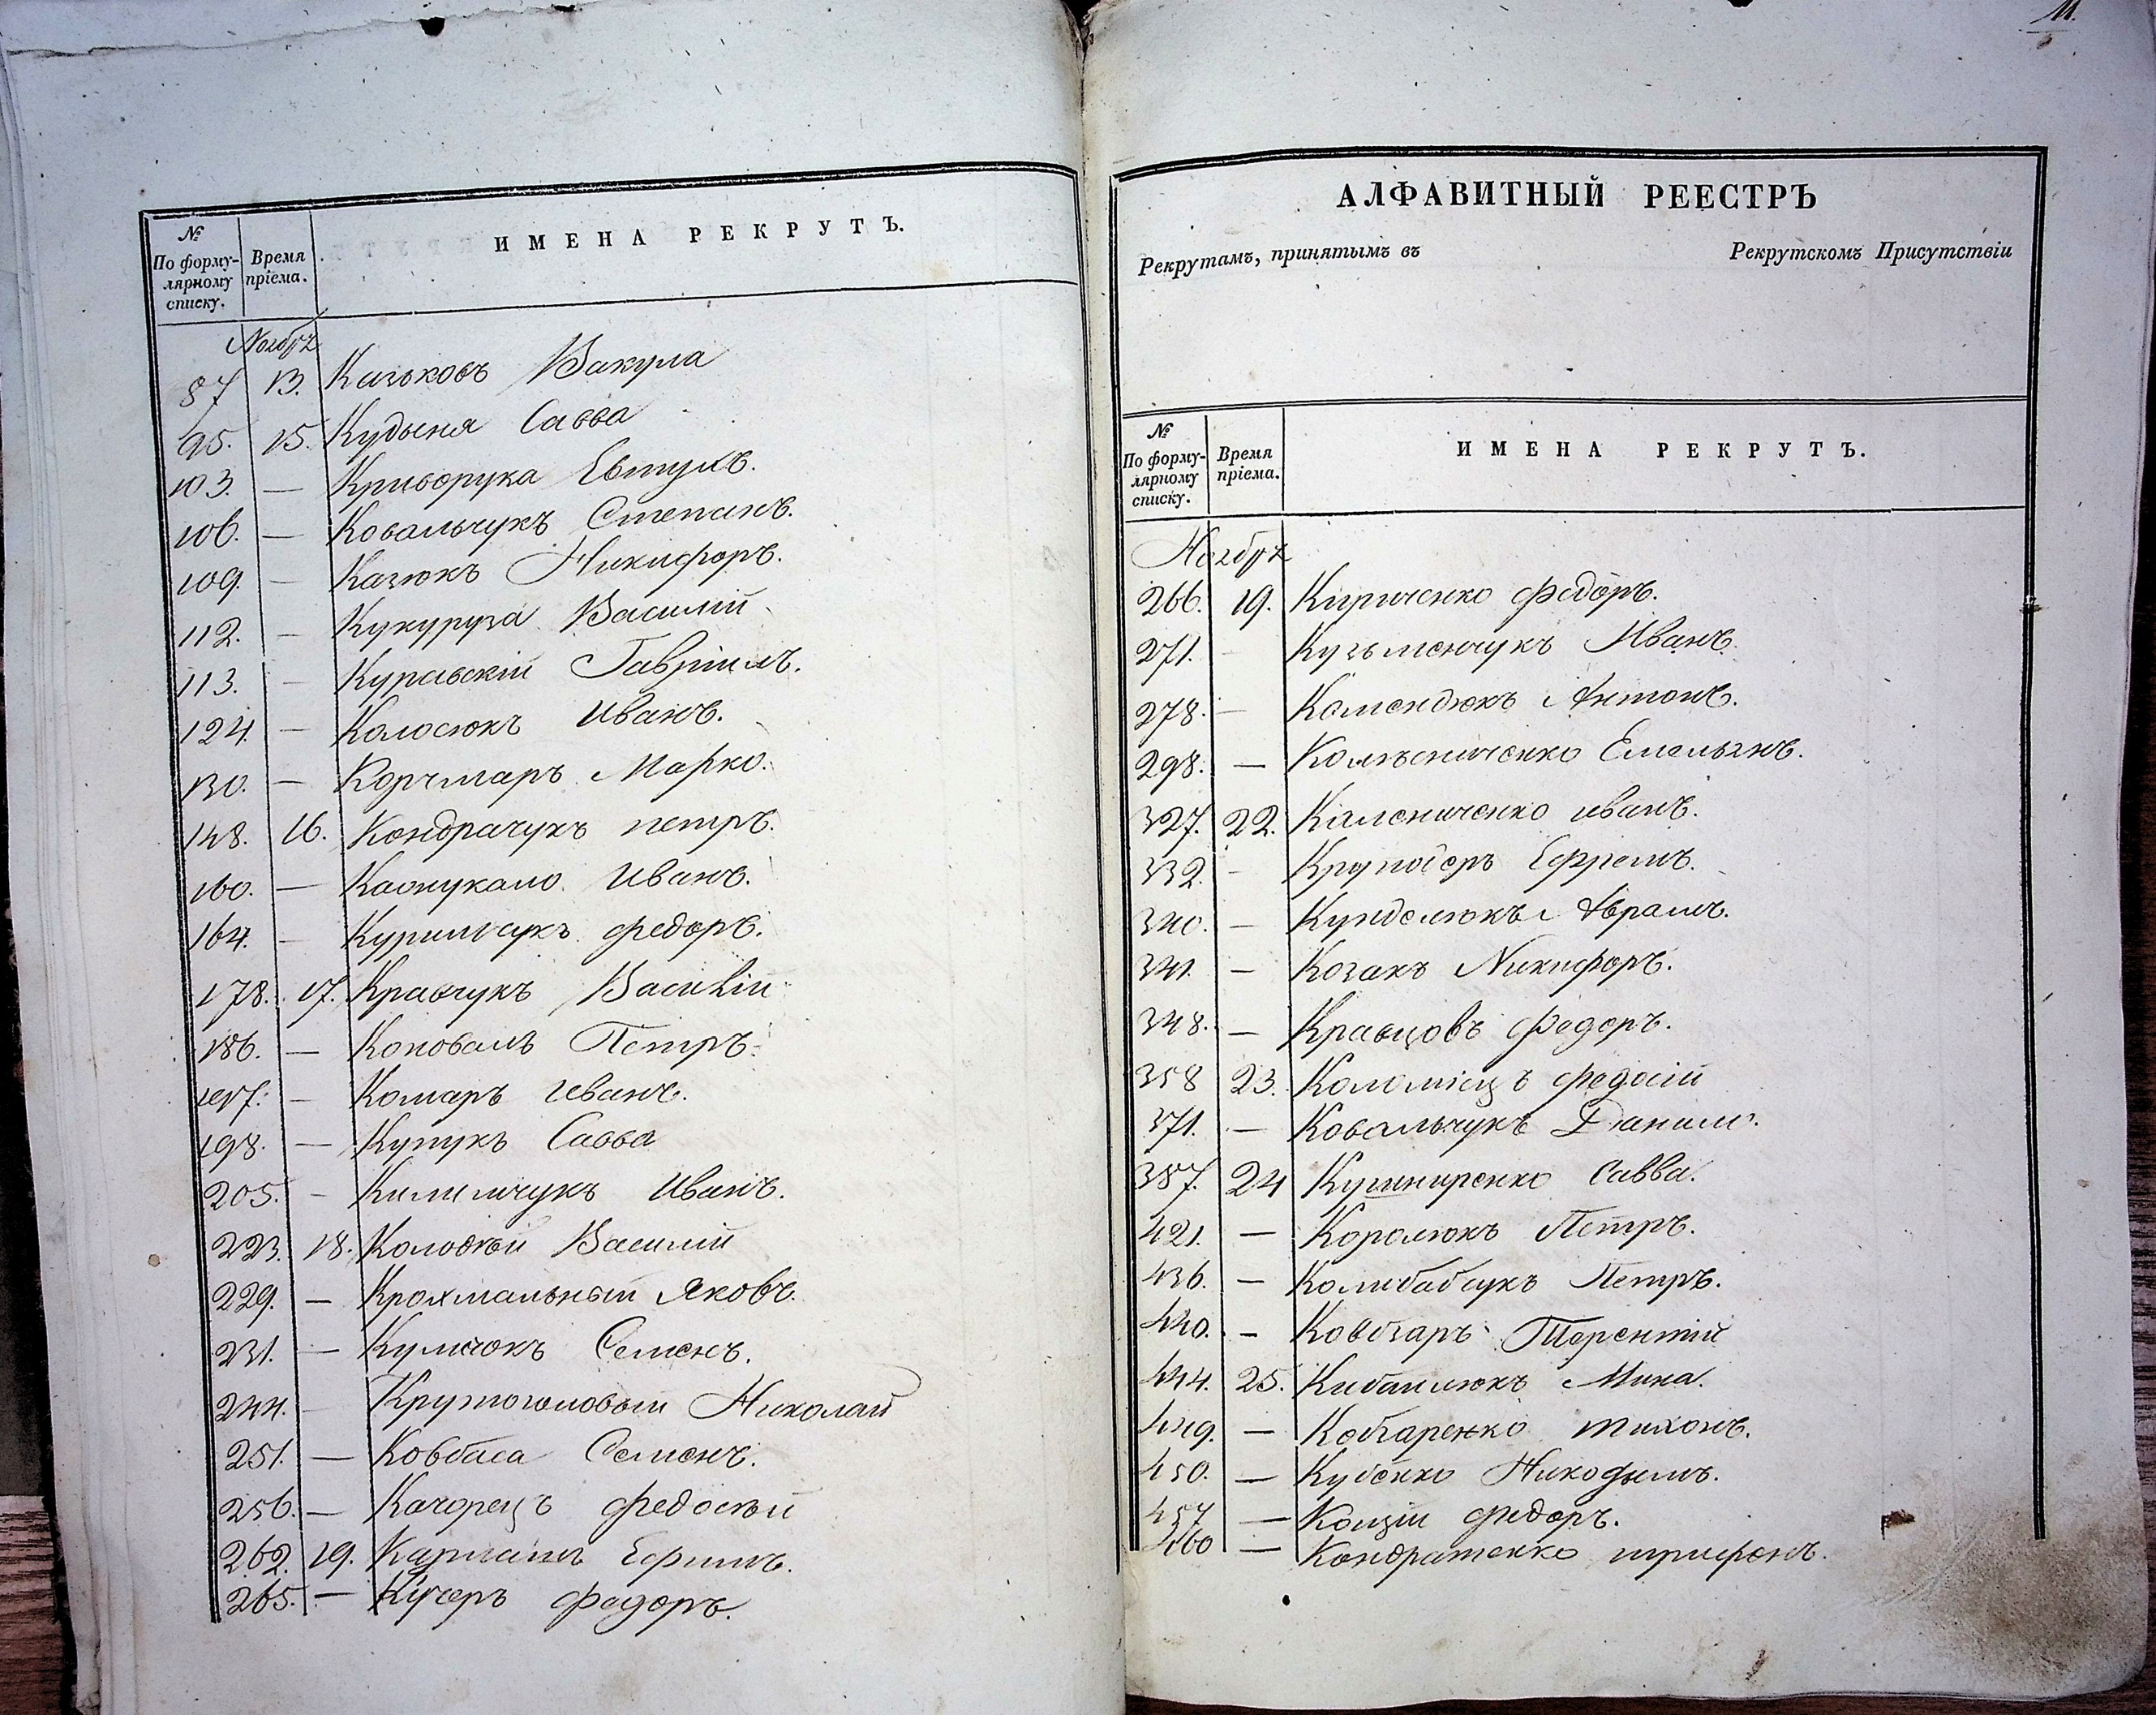 №
По форму-
лярному
списку.
Время
пріема.
ИМЕНА РЕКРУТЪ.
Ноябрь
87 13. Казьковъ Вакула
95. 15. Кудыня Савва
103. — Криворука Евтухъ.
106. — Ковальчукъ Степанъ.
109. — Казюкъ Никифоръ.
112. — Кукуруза Василій
113. — Куравскій Гавріилъ.
124. — Колосюкъ Иванъ.
130. — Корчмаръ Марко.
148. 16. Кондрачукъ петръ.
160. — Иванъ.
164. — Курильчукъ федоръ.
178. 17. Кравчукъ Василій
186. — Коновалъ Петръ.
197. — Комаръ Иванъ.
198. — Купукъ Савва
205. — Килимчукъ Иванъ.
223. 18. Колодѣй Василій
229. — Крохмальный Яковъ.
231. — Куличокъ Семенъ.
244. — Круглоголовый Николай
251. — Ковбаса Семенъ.
256. — Качорецъ федосѣй
262. 19. Ефимъ.
265. — Кучеръ федоръ.
11.
АЛФАВИТНЫЙ РЕЕСТРЪ
Рекрутамъ, принятымъ въ Рекрутскомъ Присутствіи
№
По форму-
лярному
списку.
Время
пріема.
ИМЕНА РЕКРУТЪ.
Ноябрь
266. 19. Кириченко федоръ.
271. — Кузьменчукъ Иванъ.
278. — Комендюкъ Антонъ.
298. — Колѣсниченко Емельянъ.
327. 22. Калениченко иванъ.
332. — Круподеръ Ефремъ.
340. — Кунделюкъ Аврамъ.
341. — Козакъ Никифоръ.
348. — Кравцовъ федоръ.
358 23. Коломіецъ федосій
371. — Ковальчукъ Данило.
387. 24 Кушниренко Савва.
421. — Королюкъ Петръ.
436. — Колибабчукъ Петръ.
440. — Ковбгаръ Терентій
444. 25. Кибалюкъ Мина.
449. — Кобзаренко тихонъ.
450. — Кубенко Никодимъ.
457 — Коцій федоръ.
460 — Кондратенко трифонъ.